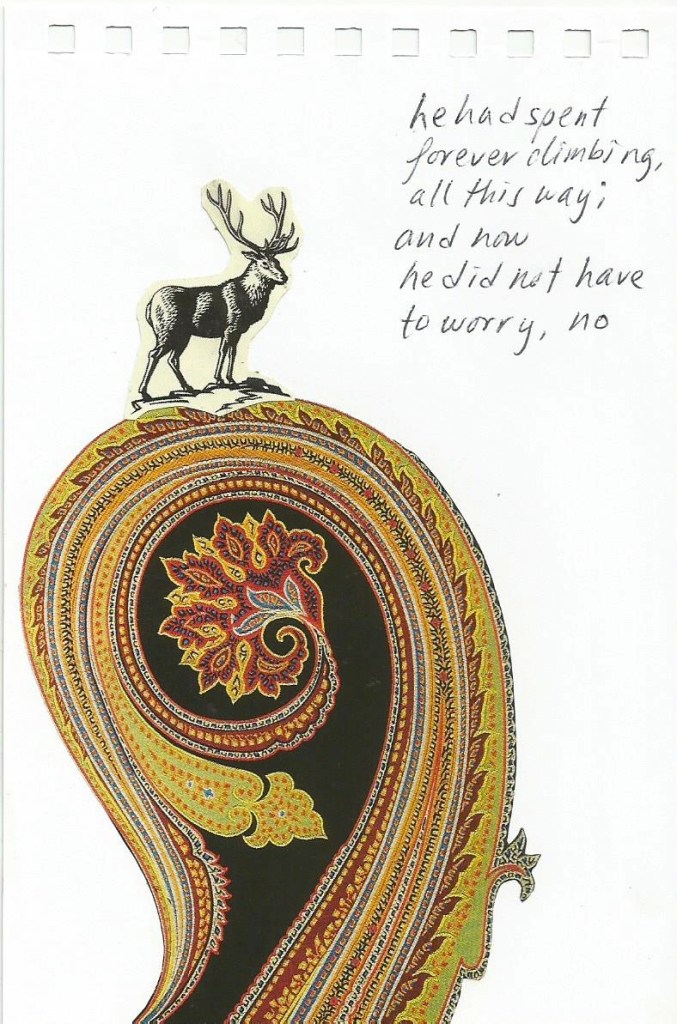 he had spent
forever climbing,
all this way;
and now
he did not have
to worry, no